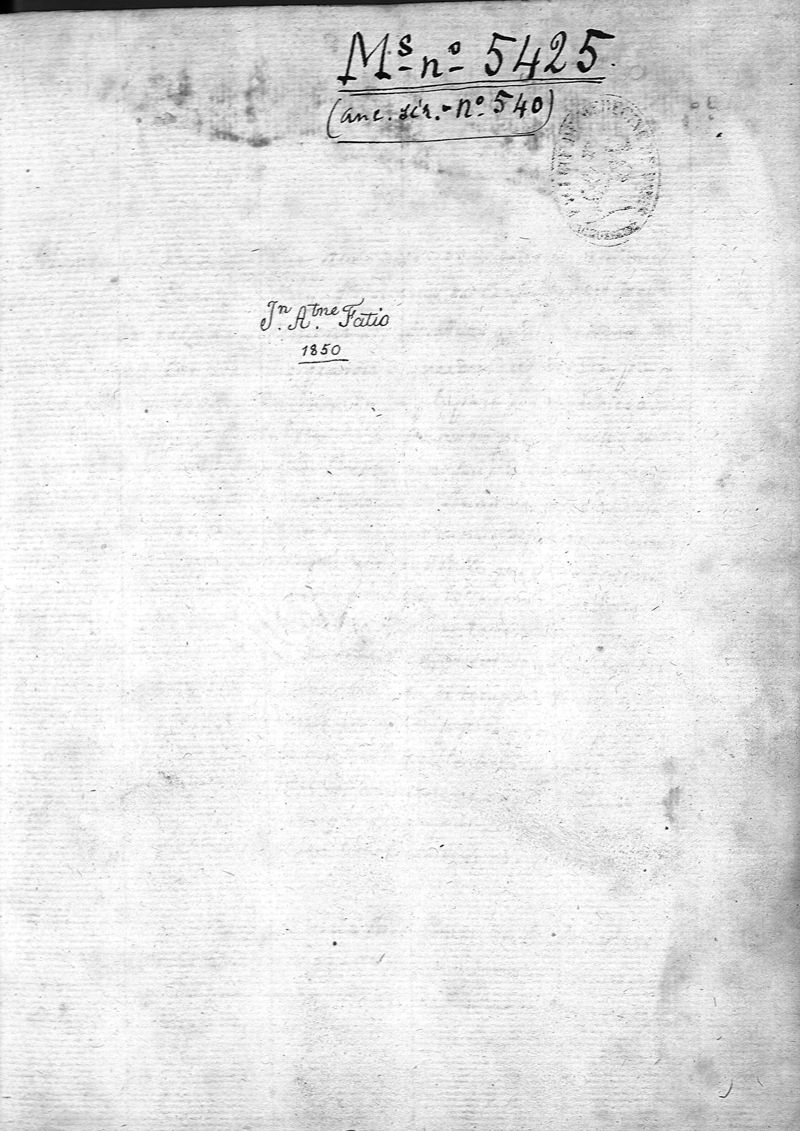 Mˢ nº 5425.
(anc. sér. - nº 540)
Jⁿ. Aᵗⁿᵉ. Fatio
1850